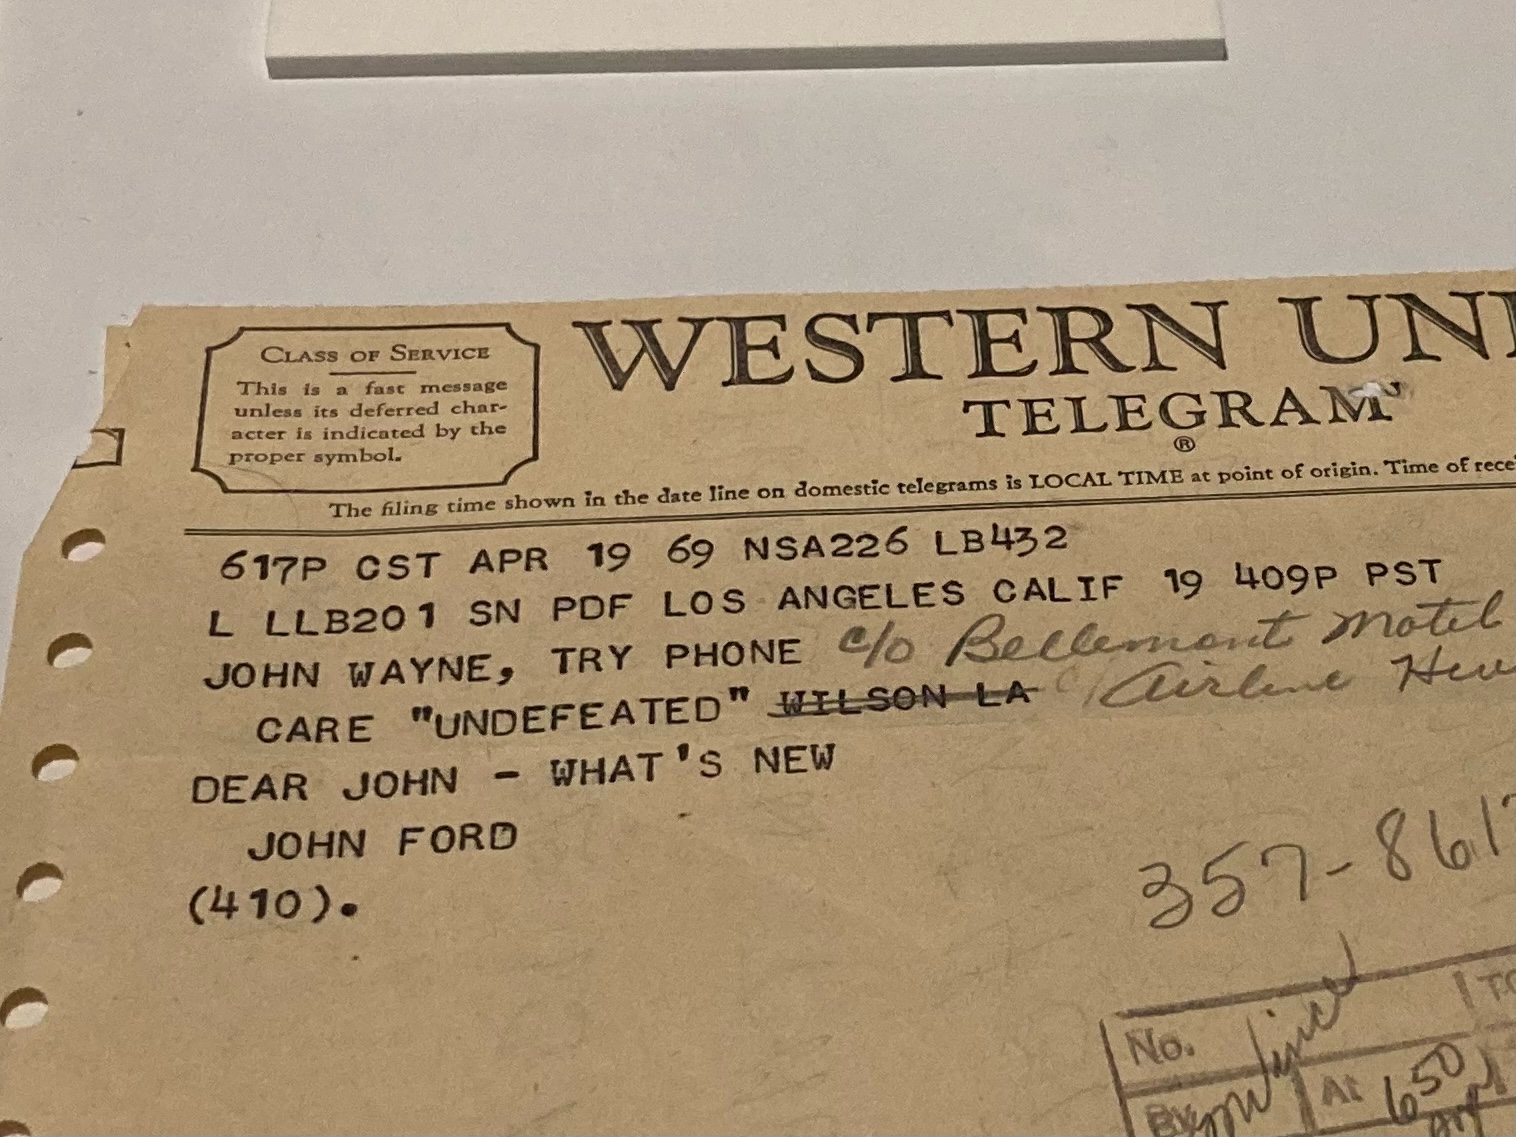 CLASS OF SERVICE
This is a fast message
unless its deferred char-
acter is indicated by the
proper symbol.
WESTERN UNI
TELEGRAM
®
The filing time shown in the date line on domestic telegrams is LOCAL TIME at point of origin. Time of rece
617P CST APR 19 69 NSA226 LB432
L LLB201 SN PDF LOS ANGELES CALIF 19 409P PST
JOHN WAYNE, TRY PHONE c/o Bellemont Motel
CARE "UNDEFEATED" WILSON LA Airline
DEAR JOHN - WHAT'S NEW
JOHN FORD
(410).
357-8617
No.
By At 650